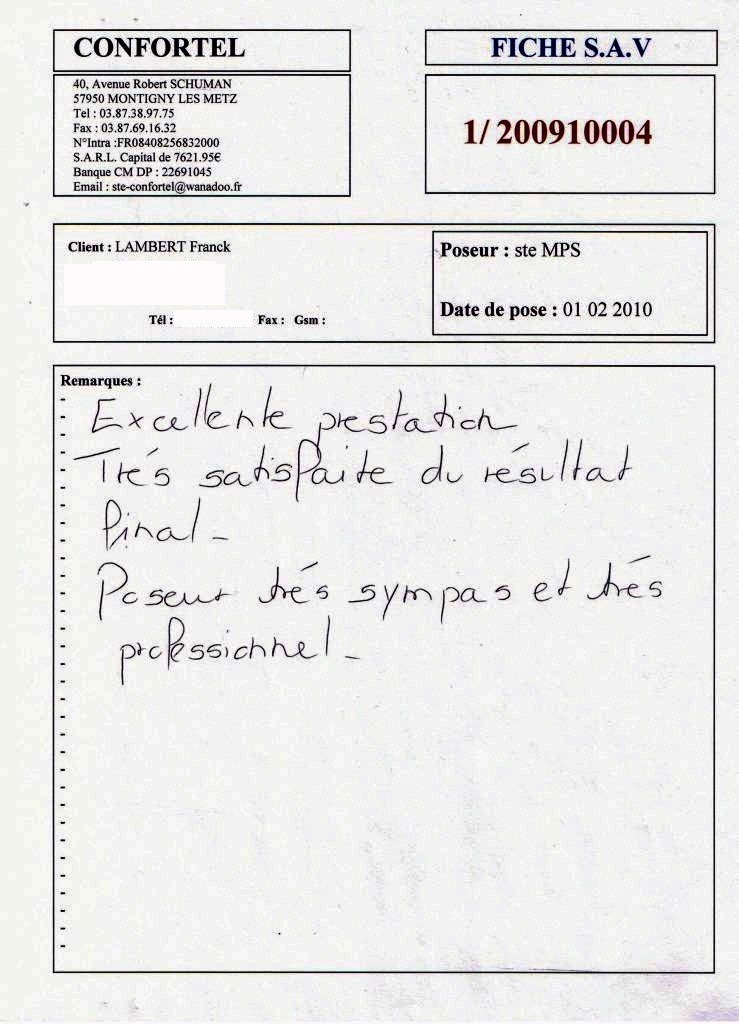 CONFORTEL
FICHE S.A.V
40, Avenue Robert SCHUMAN
57950 MONTIGNY LES METZ
Tel : 03.87.38.97.75
Fax : 03.87.69.16.32
N°Intra :FR08408256832000
S.A.R.L. Capital de 7621.95€
Banque CM DP : 22691045
Email : ste-confortel@wanadoo.fr
1/ 200910004
Client : LAMBERT Franck
Tél : Fax : Gsm :
Poseur : ste MPS
Date de pose : 01 02 2010
Remarques :
Excellente prestation
Trés satisfaite du résultat
final -
Poseur trés sympas et trés
professionnel -